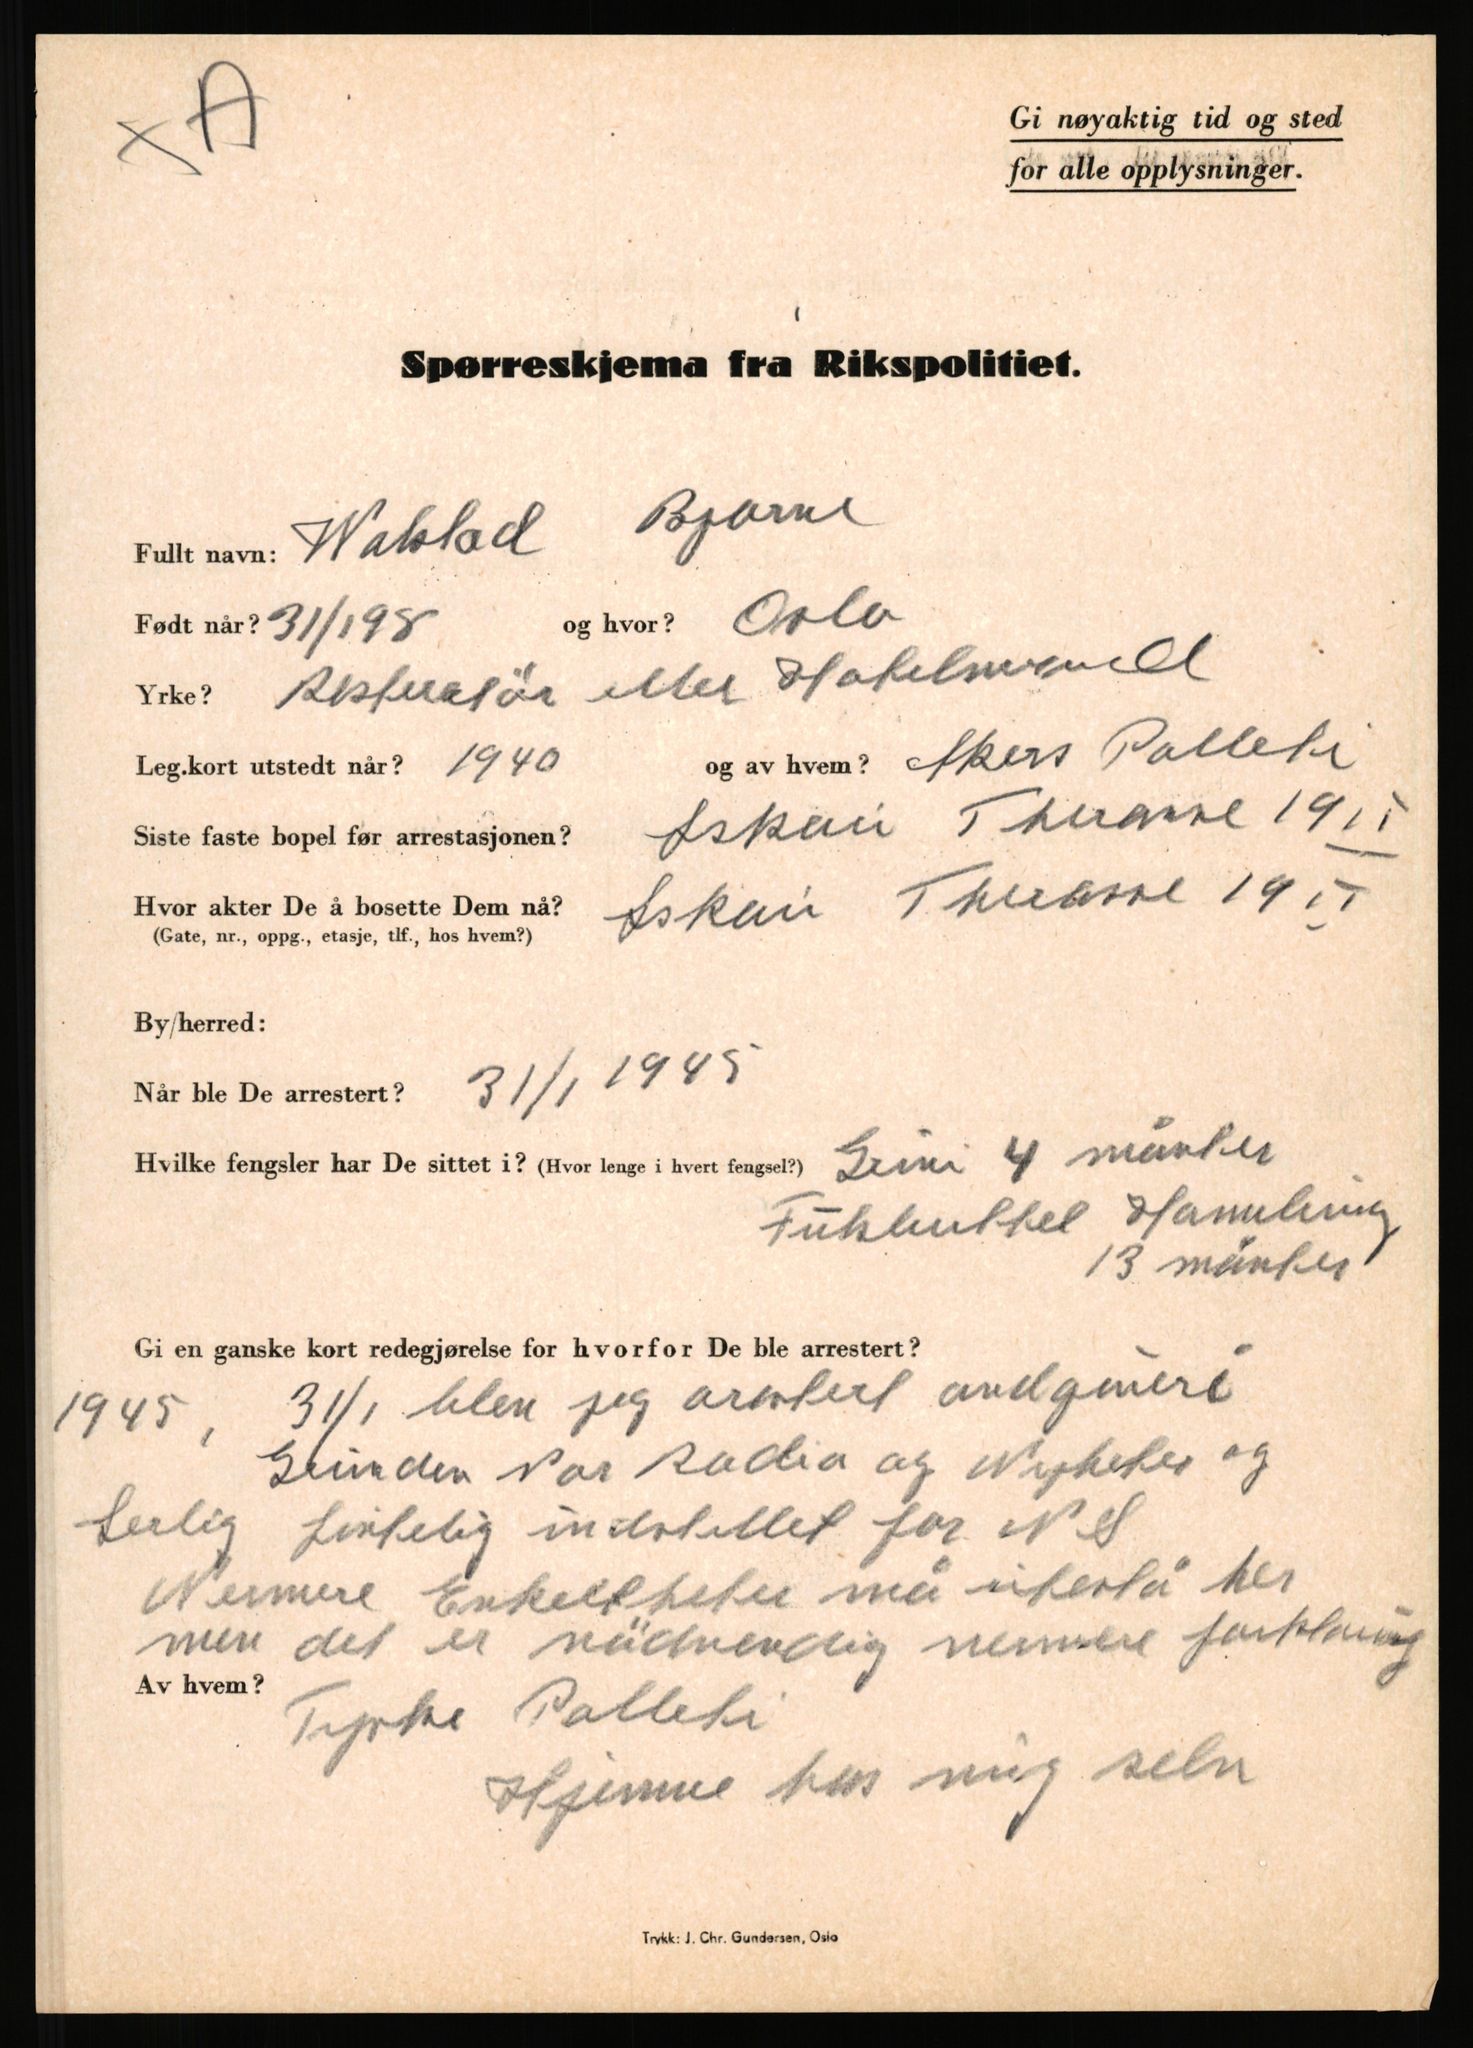 xA
Gi nøyaktig tid og sted
for alle opplysninger.
Spørreskjema fra Rikspolitiet.
Fullt navn: Walstad Bjarne
Født når? 31/1 98 og hvor? Oslo
Yrke? Resteratör eller Hotelmand
Leg.kort utstedt når? 1940 og av hvem? Akers Polleti
Siste faste bopel før arrestasjonen? Askeri Therasse 19 II
Hvor akter De å bosette Dem nå? Askeri Therasse 19 II
(Gate, nr., oppg., etasje, tlf., hos hvem?)
By/herred:
Når ble De arrestert? 31/1 1945
Hvilke fengsler har De sittet i? (Hvor lenge i hvert fengsel?) Grini 4 månter
Fühlsbuttel Hamburg
13 månter
Gi en ganske kort redegjørelse for hvorfor De ble arrestert?
1945, 31/1 blev jeg arestert
Grunden var Radio og Nyheter og
Serlig fintelig indstellet for NS
Nermere Enkeltheter må utestå her
men det er nödvendig nermere forklaring
Av hvem? Tyske Polleti
Hjemme hos mig selv
Trykk: J. Chr. Gundersen, Oslo